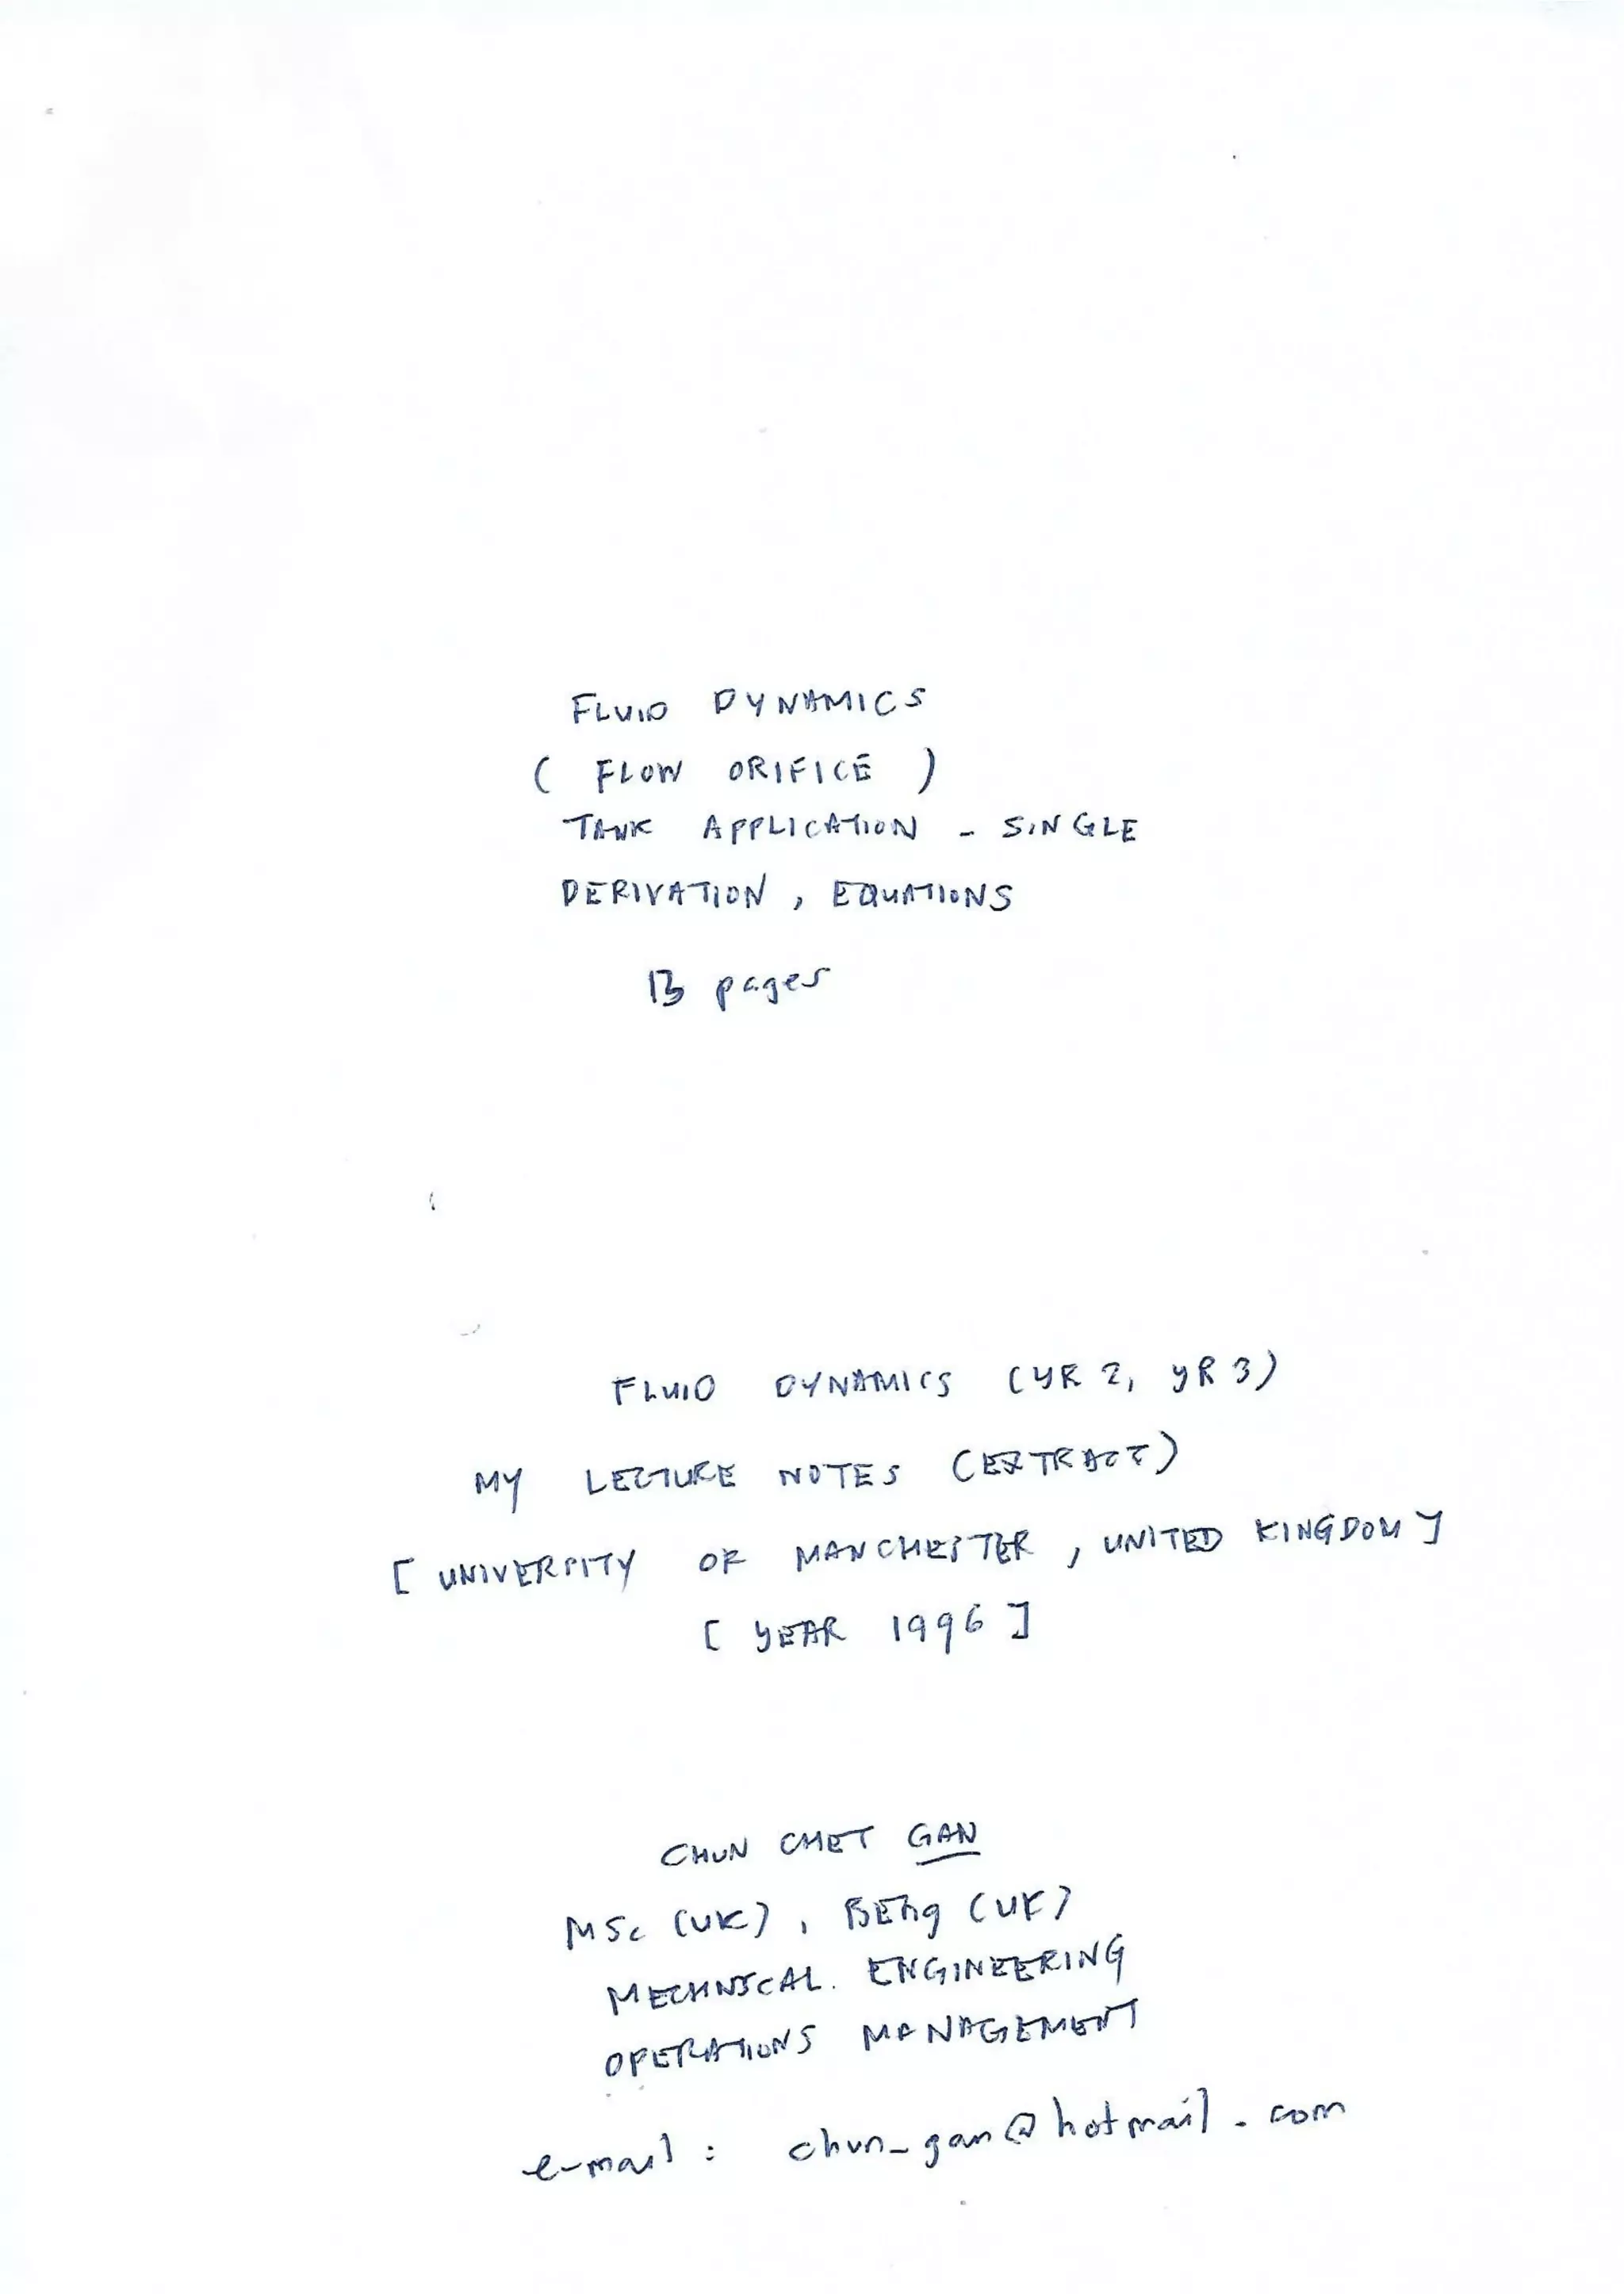 FLUID DYNAMICS
( FLOW ORIFICE )
TANK APPLICATION - SINGLE
DERIVATION, EQUATIONS
13 pages
FLUID DYNAMICS (YR 2, YR 3)
MY LECTURE NOTES (EXTRACT)
[ UNIVERSITY OF MANCHESTER, UNITED KINGDOM ]
[ YEAR 1996 ]
CHUN CHET GAN
MSc (UK), BEng (UK)
MECHNICAL. ENGINEERING
OPERATIONS MANAGEMENT
e-mail : chun_gan@hotmail.com